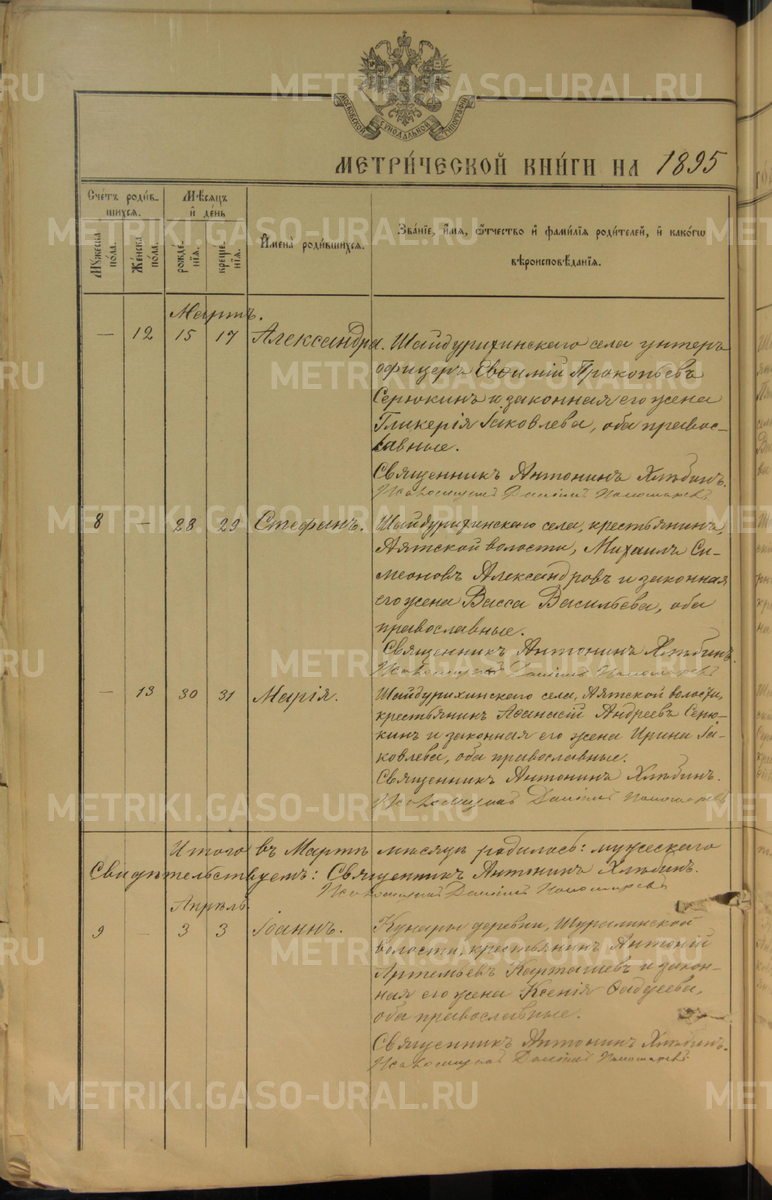 МОСКОВСКОЙ СѴНОДАЛЬНОЙ ТИПОГРАФІИ
МЕТРИ́ЧЕСКОЙ КНИ́ГИ НА 1895
Сче́тъ роди́в-
шихся.
Мѣ́сяцъ
и́ де́нь
Му́жеска по́ла.
Же́нска по́ла.
рожде́-
нія.
креще́-
нія.
И҆мена̀ роди́вшихся.
Зва́ніе, и҆́мя, ѻ҆́тчество и҆ фами́лія роди́телей, и҆ како́гѡ
вѣроисповѣ́данія.
Мартъ.
— 12 15 17 Александра. Шайдурихинскаго села унтеръ
офицеръ Евѳимій Прокопьевъ
Серюкинъ и законная его жена
Гликерія Іаковлева, оба правос-
лавные.
Священникъ Антонинъ Хлѣбинъ.
Псаломщикъ Даніилъ Пономаревъ
8 — 28 29 Стефанъ. Шайдурихинскаго села, крестьянинъ,
Аятской волости, Михаилъ Си-
меоновъ Александровъ и законная
его жена Васса Васильева, оба
православные.
Священникъ Антонинъ Хлѣбинъ.
Псаломщикъ Даніилъ Пономаревъ
— 13 30 31 Марія. Шайдурихинскаго села, Аятской волости,
крестьянинъ Аѳанасій Андреевъ Серю-
кинъ и законная его жена Ирина Іа-
ковлева, оба православные.
Священникъ Антонинъ Хлѣбинъ.
Псаломщикъ Даніилъ Пономаревъ
Итого въ Мартѣ мѣсяцѣ родилось: мужескаго
Свидѣтельствуемъ: Священникъ Антонинъ Хлѣбинъ.
Псаломщикъ Даніилъ Пономаревъ
Апрѣль.
9 — 3 3 Іоаннъ. деревни, Шуралинской
волости, крестьянинъ Антоній
Артемьевъ Карташевъ и закон-
ная его жена Ксенія Ѳаддеева,
оба православные.
Священникъ Антонинъ Хлѣбинъ.
Псаломщикъ Даніилъ Пономаревъ
METRIKI.GASO-URAL.RU